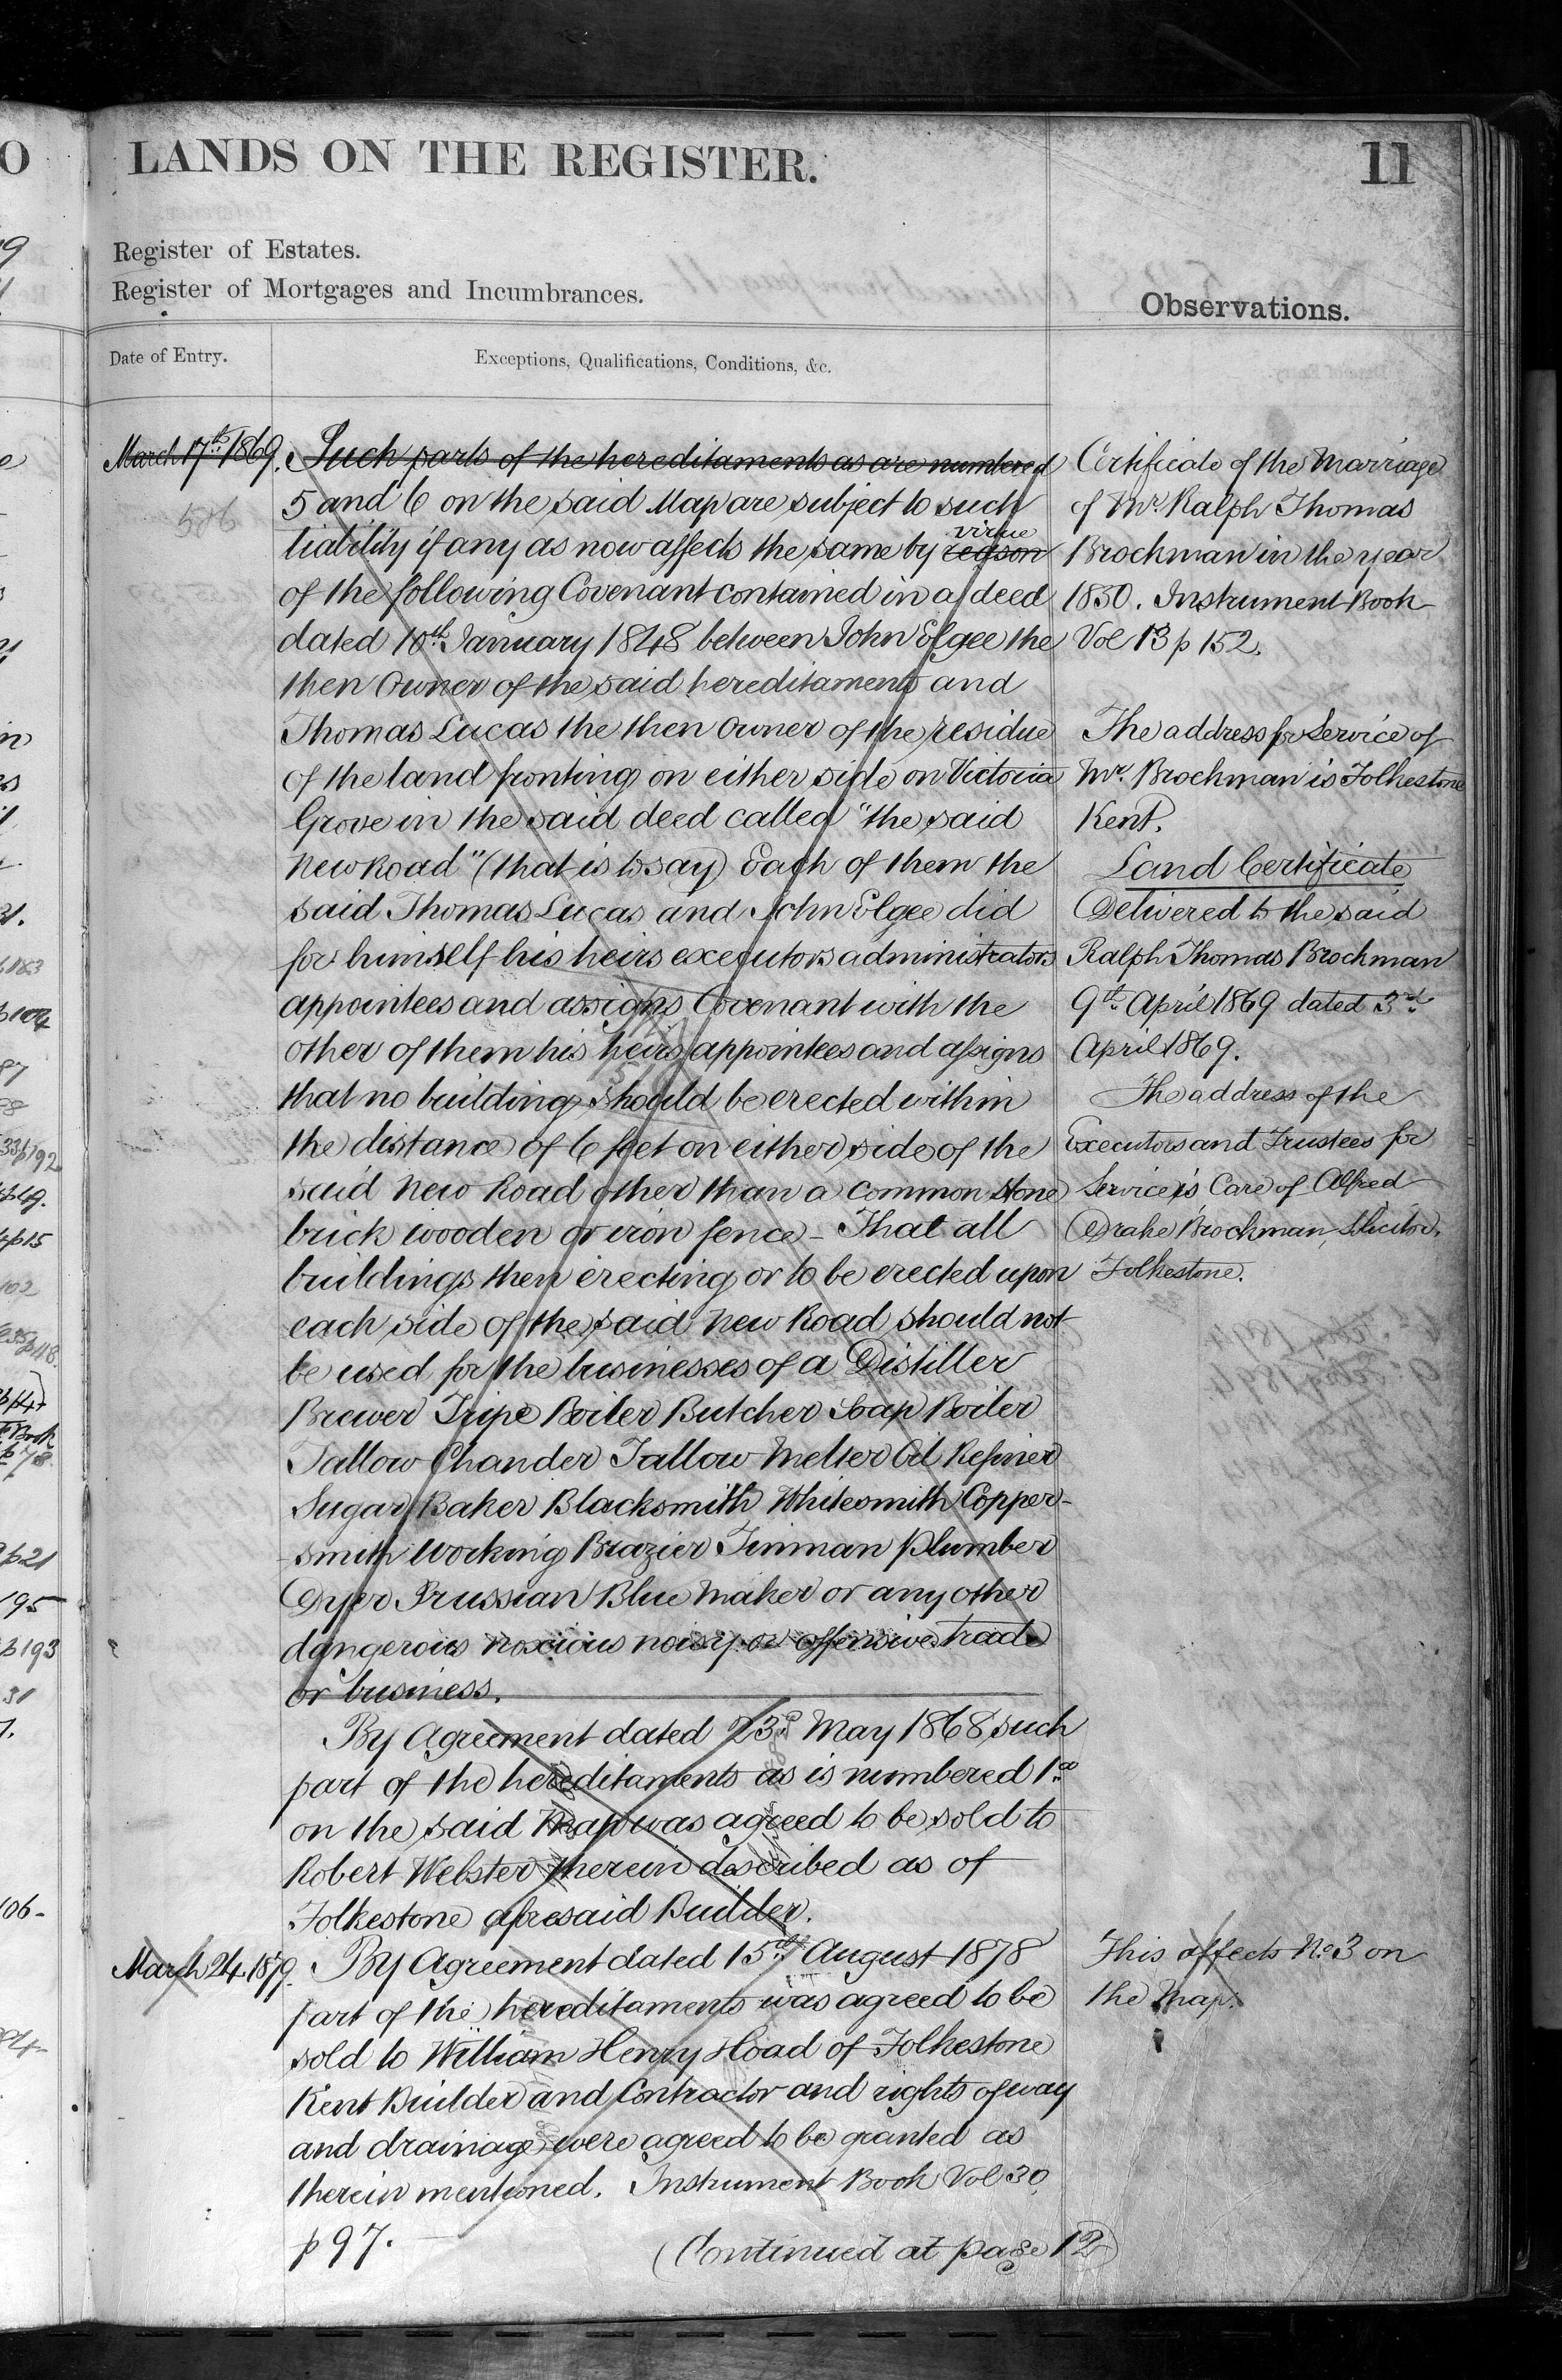 LANDS ON THE REGISTER.
11
Register of Estates.
Register of Mortgages and Incumbrances.
Observations.
Date of Entry.
Exceptions, Qualifications, Conditions, &c.
March 17th 1869.
586
Such parts of the hereditaments as are numbered
5 and 6 on the said Map are subject to such
virtue
liability if any as now affects the same by reason
of the following Covenant contained in a deed
dated 10th January 1848 between John Elgee the
then Owner of the said hereditaments and
Thomas Lucas the then Owner of the residue
of the land fronting on either side on Victoria
Grove in the said deed called "the said
New Road" (that is to say) Each of them the
said Thomas Lucas and John Elgee did
for himself his heirs executors administrators
appointees and assigns Covenant with the
other of them his heirs appointees and assigns
that no building should be erected within
the distance of 6 feet on either side of the
said New Road other than a common stone
brick wooden or iron fence - That all
buildings then erecting or to be erected upon
each side of the said New Road should not
be used for the businesses of a Distiller
Brewer Tripe Boiler Butcher Soap Boiler
Tallow Chander Tallow Melter Oil Refiner
Sugar Baker Blacksmith Whitesmith Copper-
-smith Working Brazier Tinman Plumber
Dyer Prussian Blue Maker or any other
dangerous noxious noisy or offensive trade
or business.
By Agreement dated 23rd May 1868 such
part of the hereditaments as is numbered 1a
on the said Map was agreed to be sold to
Robert Webster therein described as of
Folkestone aforesaid Builder.
March 24. 1879.
By Agreement dated 15th August 1878
part of the hereditaments was agreed to be
sold to William Henry Hoad of Folkestone
Kent Builder and Contractor and rights of way
and drainage were agreed to be granted as
therein mentioned. Instrument Book Vol 30
p 97.
(Continued at page 12)
Certificate of the Marriage
of Mr. Ralph Thomas
Brockman in the year
1850. Instrument Book
Vol 13 p 152.
The address for Service of
Mr. Brockman is Folkestone
Kent.
Land Certificate
Delivered to the said
Ralph Thomas Brockman
9th April 1869 dated 3rd
April 1869.
The address of the
Executors and Trustees for
Service is Care of Alfred
Drake Brockman, Solicitor,
Folkestone.
This affects No. 3 on
the Map.